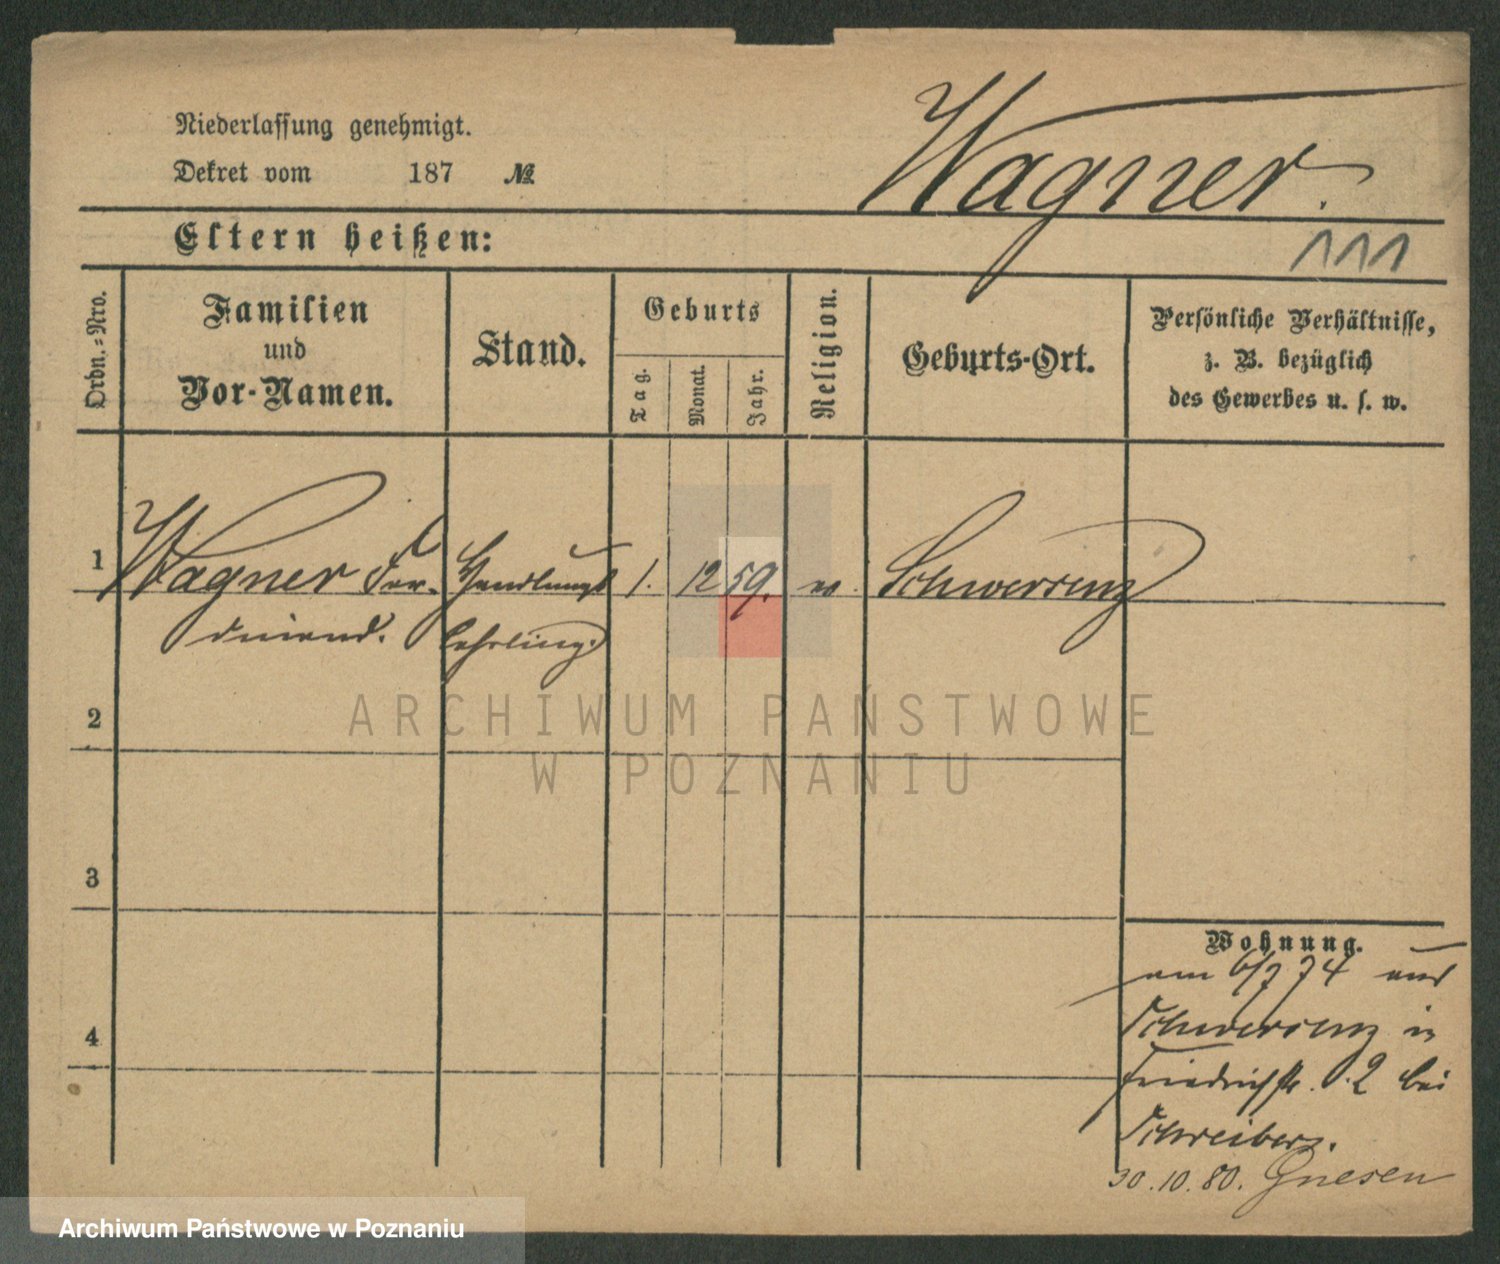 Niederlassung genehmigt.
Dekret vom 187 №
Wagner.
Eltern heißen:
111
Ordn.-Nro.
Familien
und
Vor-Namen.
Stand.
Geburts
Tag.
Monat.
Jahr.
Religion.
Geburts-Ort.
Persönliche Verhältnisse,
z. B. bezüglich
des Gewerbes u. s. w.
1 Wagner Fer- Handlungs 1. 12 59. Schwersenz
dinand. lehrling.
2
ARCHIWUM PAŃSTWOWE
W POZNANIU
3
4
Wohnung.
am 6/7 74 aus
Schwersenz in
Friedrichstr. 2 bei
Schreiber.
30.10.80. Gnesen
Archiwum Państwowe w Poznaniu